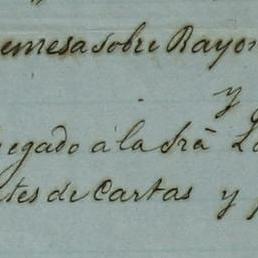 emesa sobre Rayo
y
egado á la Srâ L
tes de Cartas y